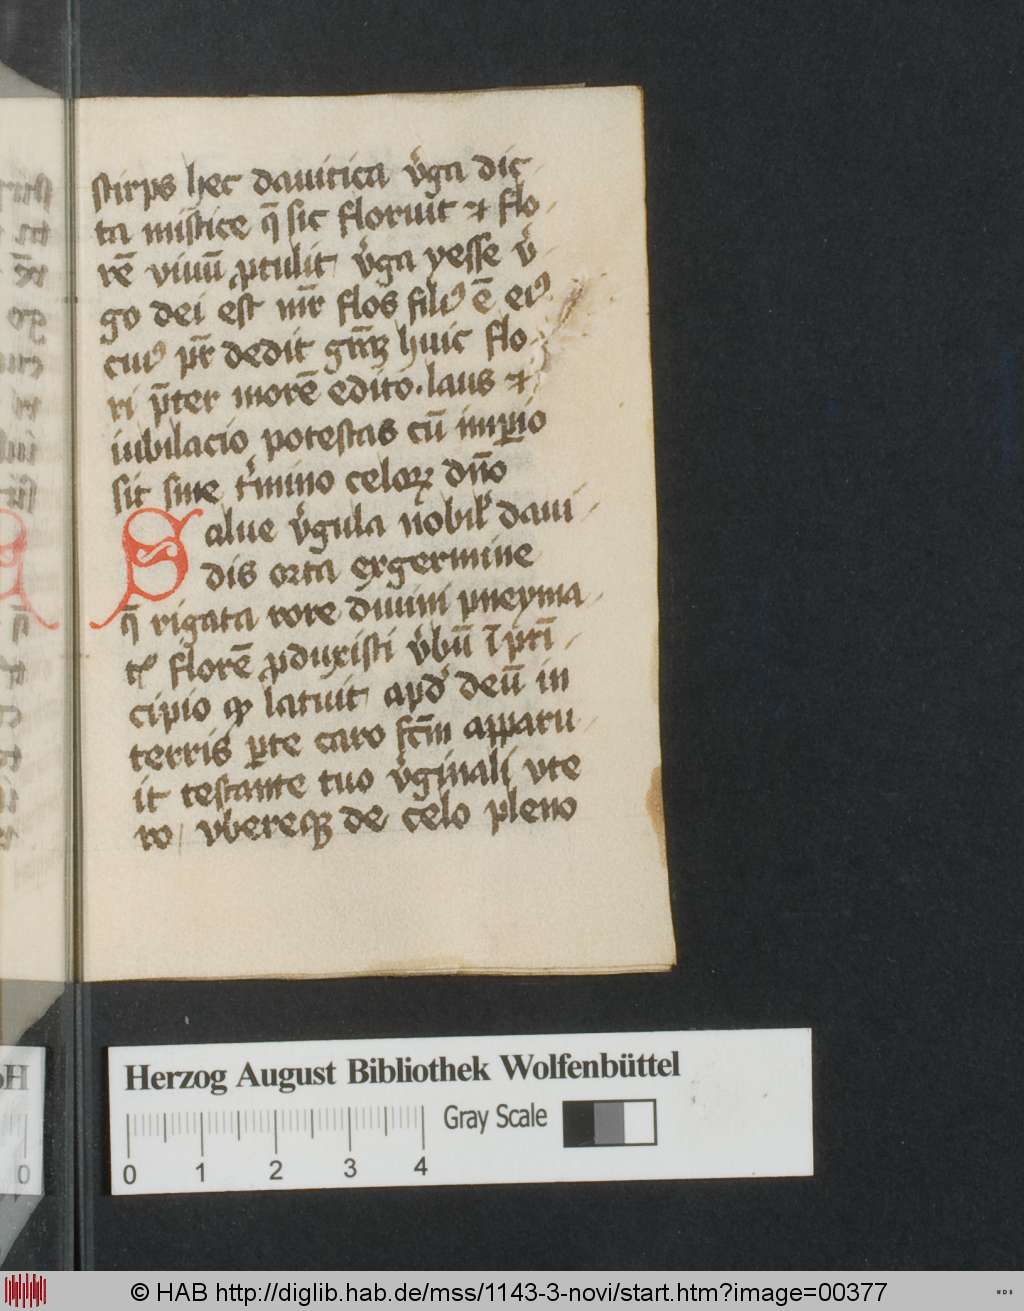 stirps hec dauitica v̾ga dic
ta mistice q̄ sic floruit ⁊ flo
rē viuū ꝓtulit v̾ga yesse v̾
go dei est mr̄ flos filiꝰ ē eiꝰ
cuiꝰ pr̄ dedit gr̄aꝫ huic flo
ri p̄ter morē edito · laus ⁊
iubilacio potestas cū imꝑio
sit sine t̾mino celoꝝ dn̄o
Salue v̾gula nobil' daui
dis orta ex germine
q̄ rigata rore diuini pneyma
tꝭ florē ꝓduxisti v̾bū ī prī
cipio qꝫ latuit apd̾ deū in
terris ꝑte caro fcm̄ apparu
it testante tuo v̾ginali vte
ro vbereqꝫ de celo pleno
Herzog August Bibliothek Wolfenbüttel
Gray Scale
0 1 2 3 4
© HAB http://diglib.hab.de/mss/1143-3-novi/start.htm?image=00377